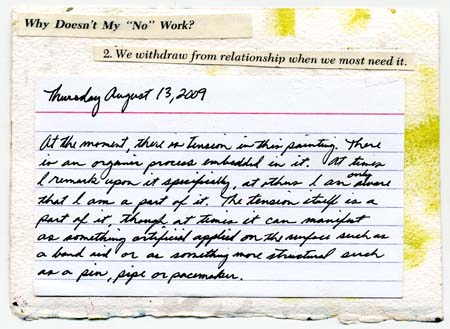 Why Doesn't My "No" Work?
2. We withdraw from relationship when we most need it.
Thursday August 13, 2009
At the moment, there is tension in this painting. There
is an organic process embedded in it. At times
I remark upon it specifically, at others I am only aware
that I am a part of it. The tension itself is a
part of it, though at times it can manifest
as something artificial applied on the surface such as
a band aid or as something more structural such
as a pin, pipe or pacemaker.